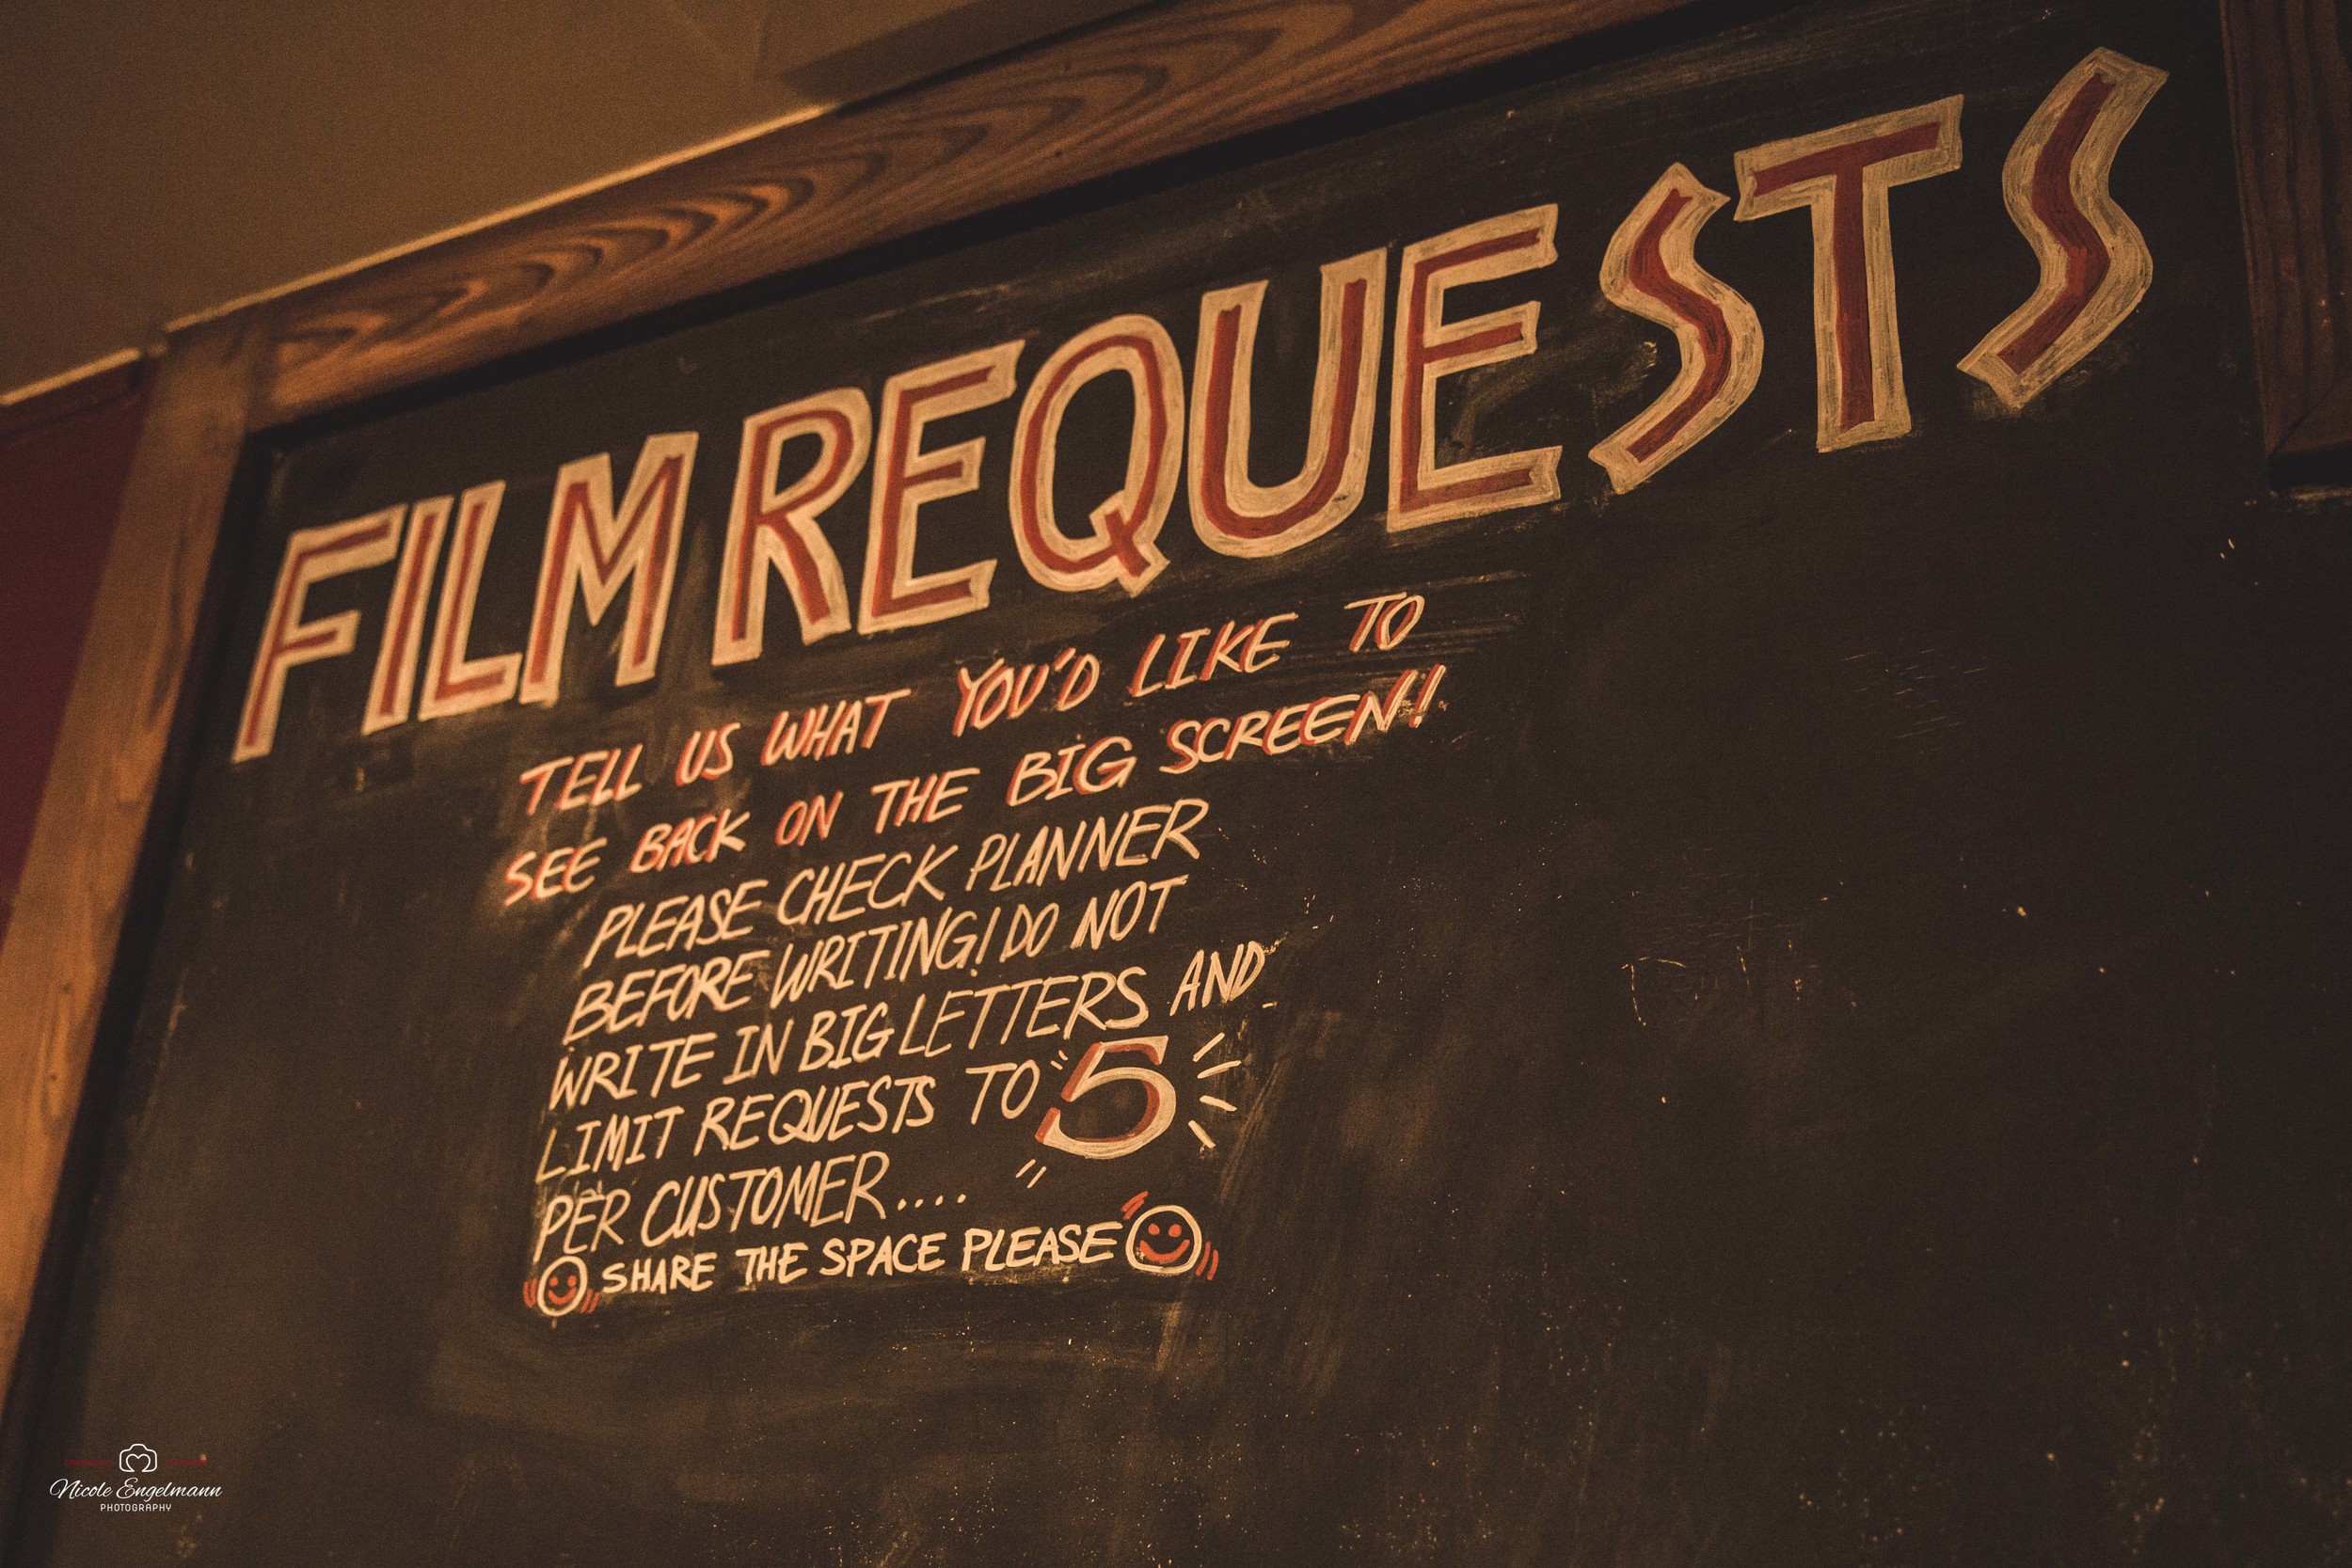 FILM REQUESTS
TELL US WHAT YOU'D LIKE TO
SEE BACK ON THE BIG SCREEN!
PLEASE CHECK PLANNER
BEFORE WRITING! DO NOT
WRITE IN BIG LETTERS AND
LIMIT REQUESTS TO 5
PER CUSTOMER....
SHARE THE SPACE PLEASE
Nicole Engelmann
PHOTOGRAPHY